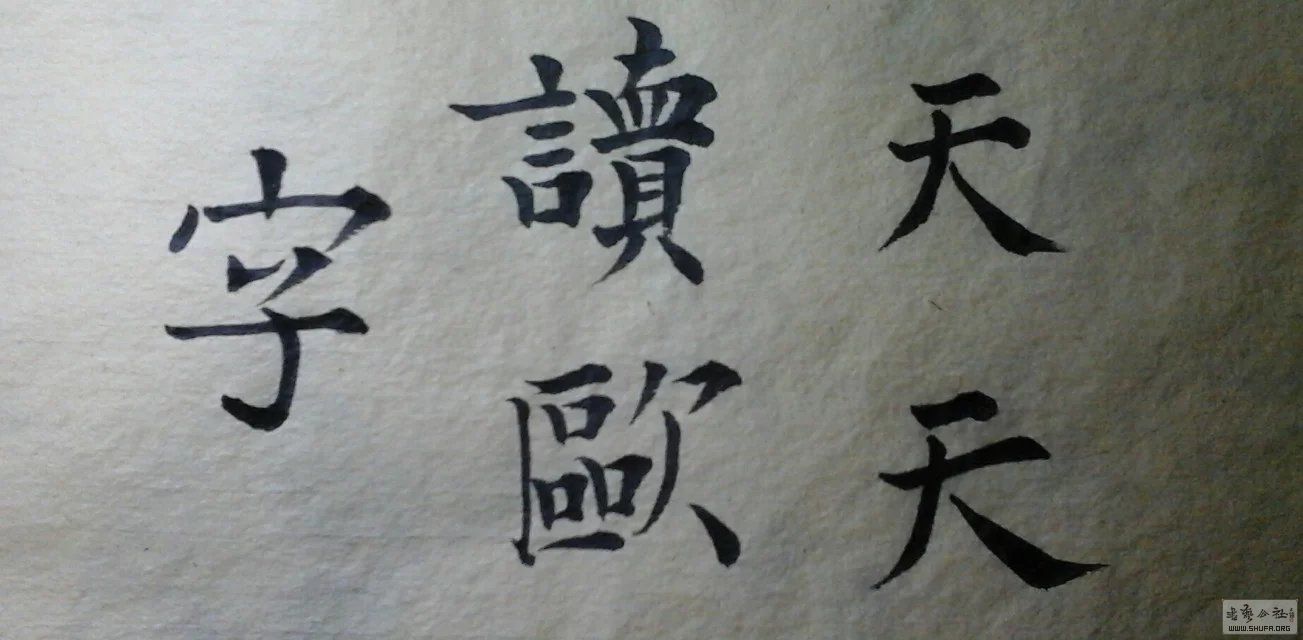 天天
讀歐
字
书艺公社
WWW.SHUFA.ORG